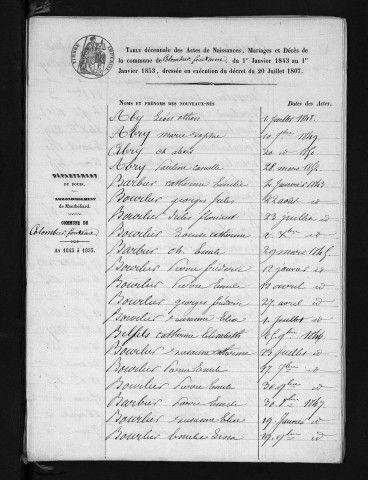 TABLE décennale des Actes de Naissances, Mariages et Décès de
la commune de Colombier fontaine du 1er Janvier 1843 au 1er
Janvier 1853, dressée en exécution du décret du 20 Juillet 1807.
DÉPARTEMENT
DU DOUBS.
ARRONDISSEMENT
de Montbéliard.
COMMUNE DE
Colombier fontaine
AN 1843 à 1853.
NOMS ET PRÉNOMS DES NOUVEAUX-NÉS
Dates des Actes.
Aby 1 juillet 1848.
Abry marie 10 9bre 1849.
Abry ch alexis
Abry pauline 28 mars 1852
Barbier catherine Emélie 2 janvier 1843
Bourlier georges jules 12 aout id
Bourlier Jules 23 juillet id
Bourlier Louise catherine
Barbier ch. Emile 29 mars 1845.
Bourlier pierre frédéric 12 janvier id
Bourlier pierre Emile 12 avril id
Bourlier georges frédéric 27 avril id
Bourlier suzanne Elisa 1 juillet id
catherine Elisabeth 25 9bre 1846
Bourlier suzanne catherine 23 juillet id
Bourlier Emile id
Bourlier pierre Emile 30 9bre id
Barbier pierre Emile 30 1847.
Bourlier suzanne Elise 19 janvier id
Bourlier 19 9bre id